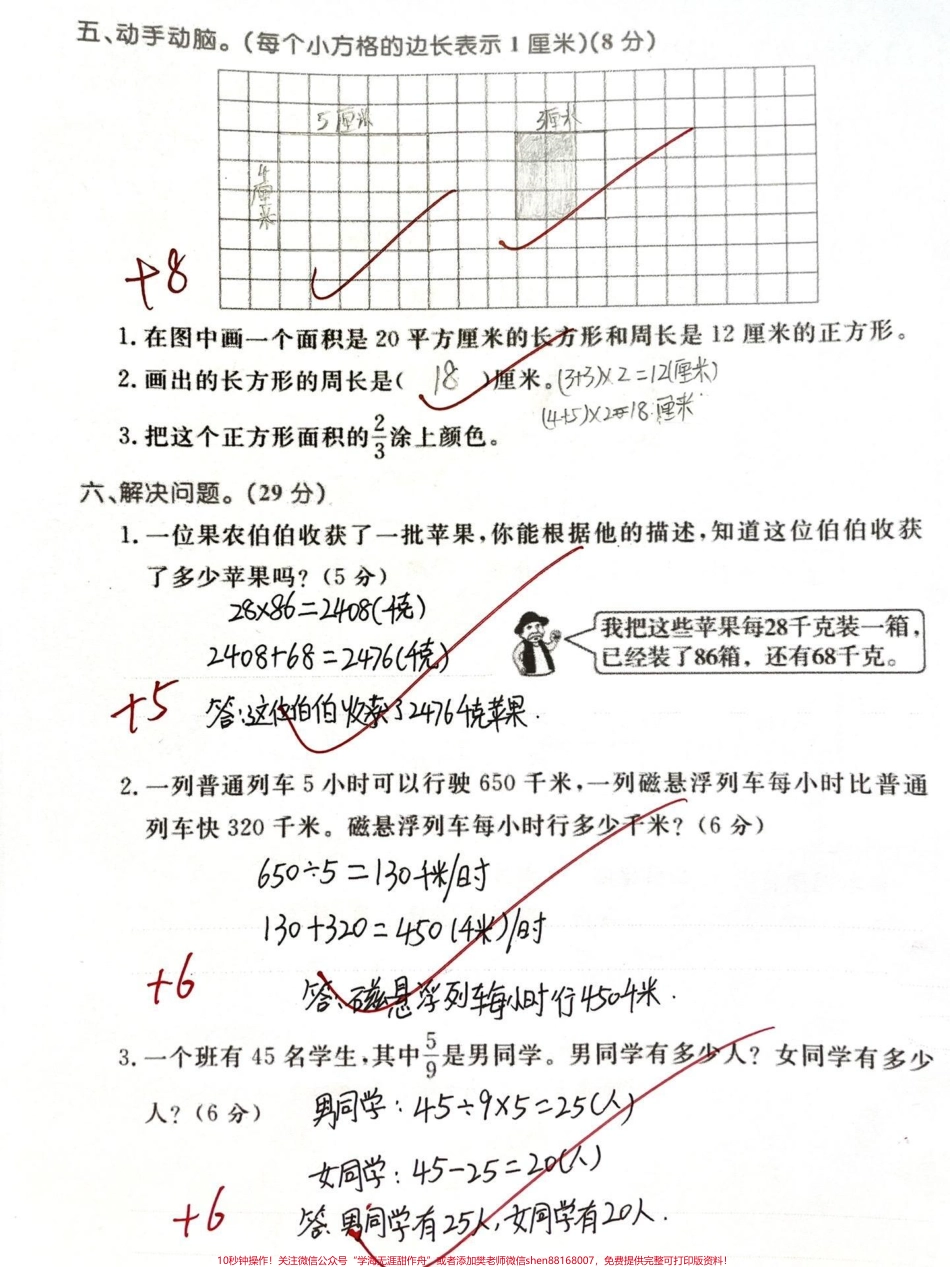 五、动手动脑。(每个小方格的边长表示1厘米)(8分)
5厘米
3厘米
4厘米
+8
1.在图中画一个面积是20平方厘米的长方形和周长是12厘米的正方形。
2.画出的长方形的周长是( 18 )厘米。(3+3)×2=12(厘米)
(4+5)×2=18厘米
3.把这个正方形面积的2/3涂上颜色。
六、解决问题。(29分)
1.一位果农伯伯收获了一批苹果,你能根据他的描述,知道这位伯伯收获
了多少苹果吗?(5分)
28×86=2408(千克)
我把这些苹果每28千克装一箱,
2408+68=2476(千克)
已经装了86箱，还有68千克。
+5
答:这位伯伯收获了2476千克苹果.
2.一列普通列车5小时可以行驶650千米,一列磁悬浮列车每小时比普通
列车快320千米。磁悬浮列车每小时行多少千米?(6分)
650÷5=130千米/时
130+320=450(千米)/时
+6
答:磁悬浮列车每小时行450千米.
3.一个班有45名学生,其中5/9是男同学。男同学有多少人?女同学有多少
人?(6分)
男同学:45÷9×5=25(人)
女同学:45-25=20(人)
+6
答:男同学有25人,女同学有20人.
10秒钟操作！关注微信公众号“学海无涯甜作舟”或者添加樊老师微信shen88168007，免费提供完整可打印版资料！